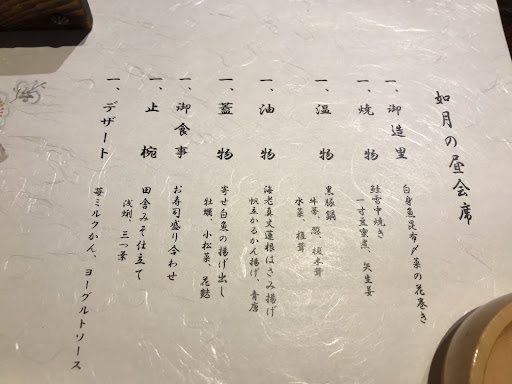 如月の昼会席
一、御造里
白身魚昆布〆菜の花巻き
一、焼物
鮭雪中焼き
一寸豆蜜煮、矢生姜
一、温物
黒豚鍋
牛蒡、葱、榎木茸
水菜、椎茸
一、油物
海老真丈蓮根はさみ揚げ
帆立かるかん揚げ、青唐
一、蓋物
寄せ白魚の揚げ出し
牡蠣、小松菜、花麩
一、御食事
お寿司盛り合わせ
一、止椀
田舎みそ仕立て
浅蜊、三つ葉
一、デザート
苺ミルクかん、ヨーグルトソース